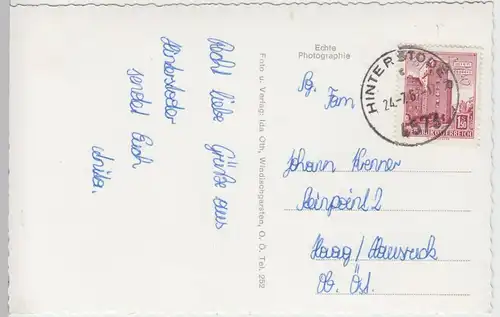 Recht liebe Grüße aus
Hinterstoder
sendet Euch
Anita.
Foto u. Verlag: Ida Oth, Windischgarsten, O. Ö. Tel. 252
Echte
Photographie
HINTERSTODER
24.-7.6
4573
1.50
ÖSTERREICH
Fam
Johann
2
Haag / Hausruck
Ob. Öst.